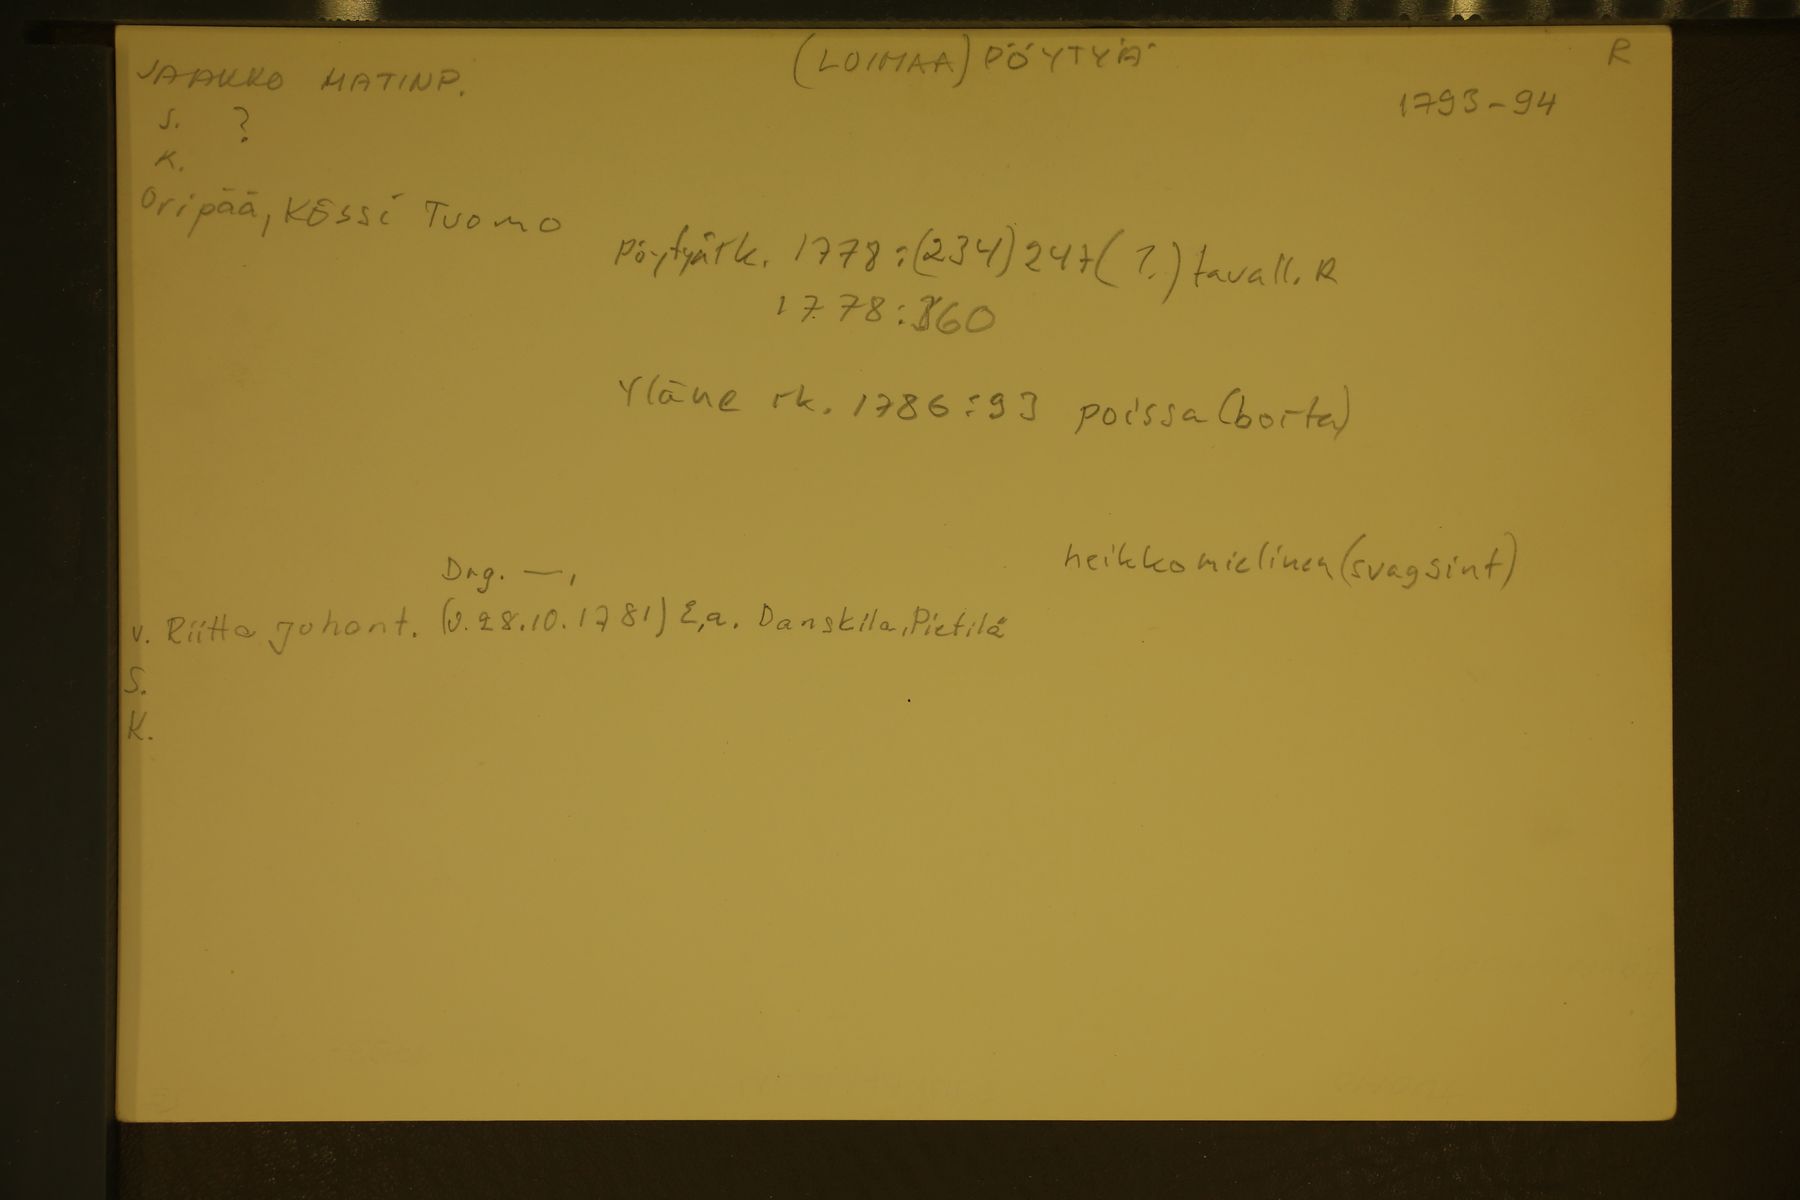 JAAKKO MATINP.
(LOIMAA) PÖYTYÄ
R
1793-94
S. ?
K.
Oripää, Kössi Tuomo
Pöytyä rk. 1778:(234) 247 (1.) tavall. R
1778:360
Yläne rk. 1786:93 poissa (borta)
heikkomielinen (svagsint)
Drg. —,
v. Riitta Juhont. (v. 28.10.1781) E,a. Danskila, Pietilä
S.
K.